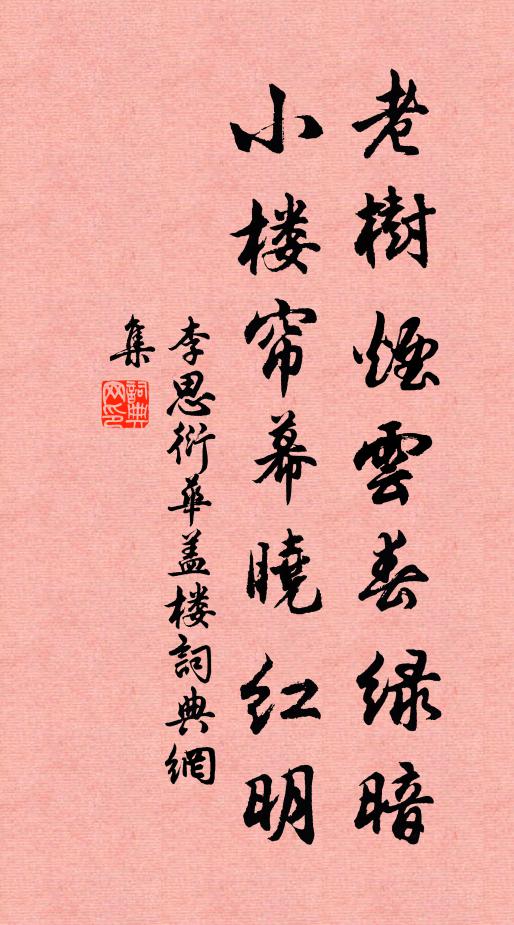 老樹煙雲春綠暗
小楼帘幕曉红明
李思衍華盖楼詞典網
集
詞典网印